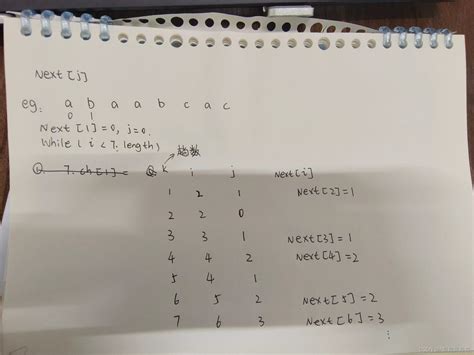 Next [j]
eg: a b a a b c a c
0 1
Next [1]=0, j=0.
While ( i < T. length)
趟数
Q T. ch[1] = Q k i j Next [i]
1 2 1 Next [2]=1
2 2 0
3 3 1 Next [3]=1
4 4 2 Next [4]=2
5 4 1
6 5 2 Next [5]=2
7 6 3 Next [6]=3
⋮